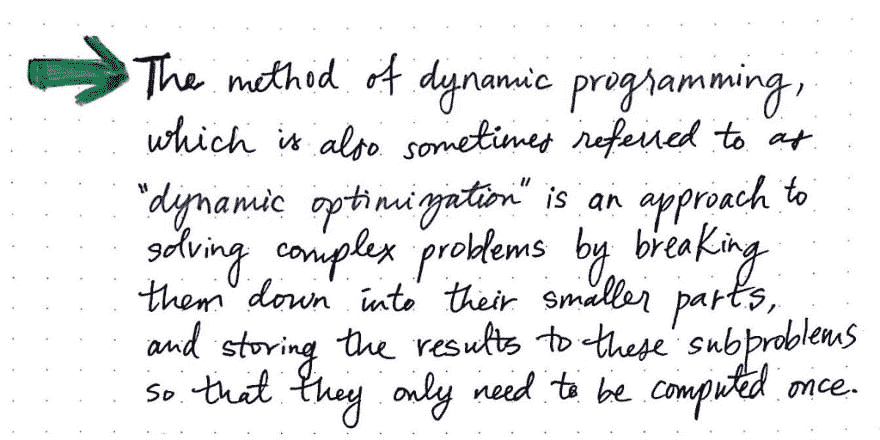 The method of dynamic programming,
which is also sometimes referred to as
"dynamic optimization" is an approach to
solving complex problems by breaking
them down into their smaller parts,
and storing the results to these subproblems
so that they only need to be computed once.